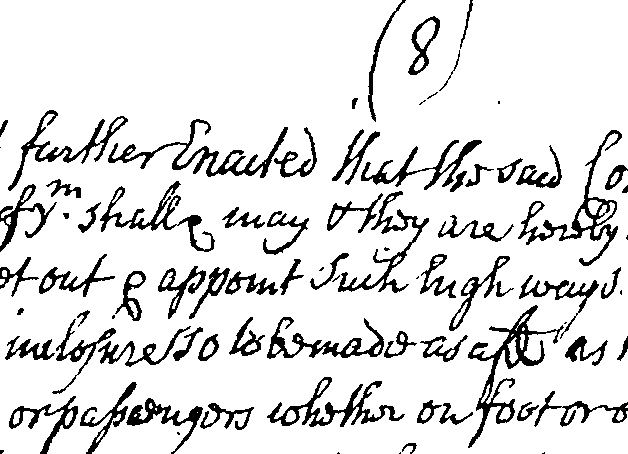 (8)
further Enacted that the said Co
of y.m shall & may & they are hereby
et out & appoint such high ways
inclosures so to be made as afd as
or passengers whether on foot or o